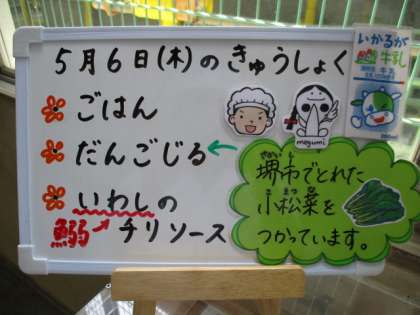 5月6日(木)のきゅうしょく
ごはん
だんごじる
いわしの
鰯
チリソース
megumi
いかるが
牛乳
さかいし
堺市でとれた
こまつな
小松菜を
つかっています。